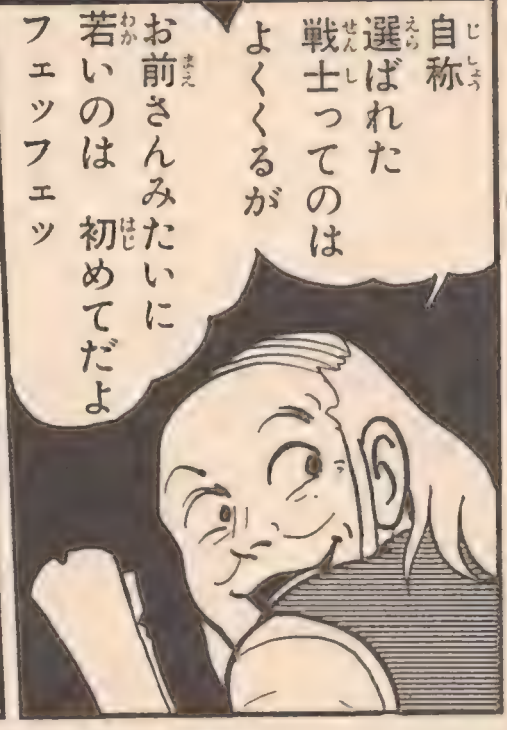 自称
選ばれた
戦士ってのは
よくくるが
お前さんみたいに
若いのは 初めてだよ
フェッフェッ